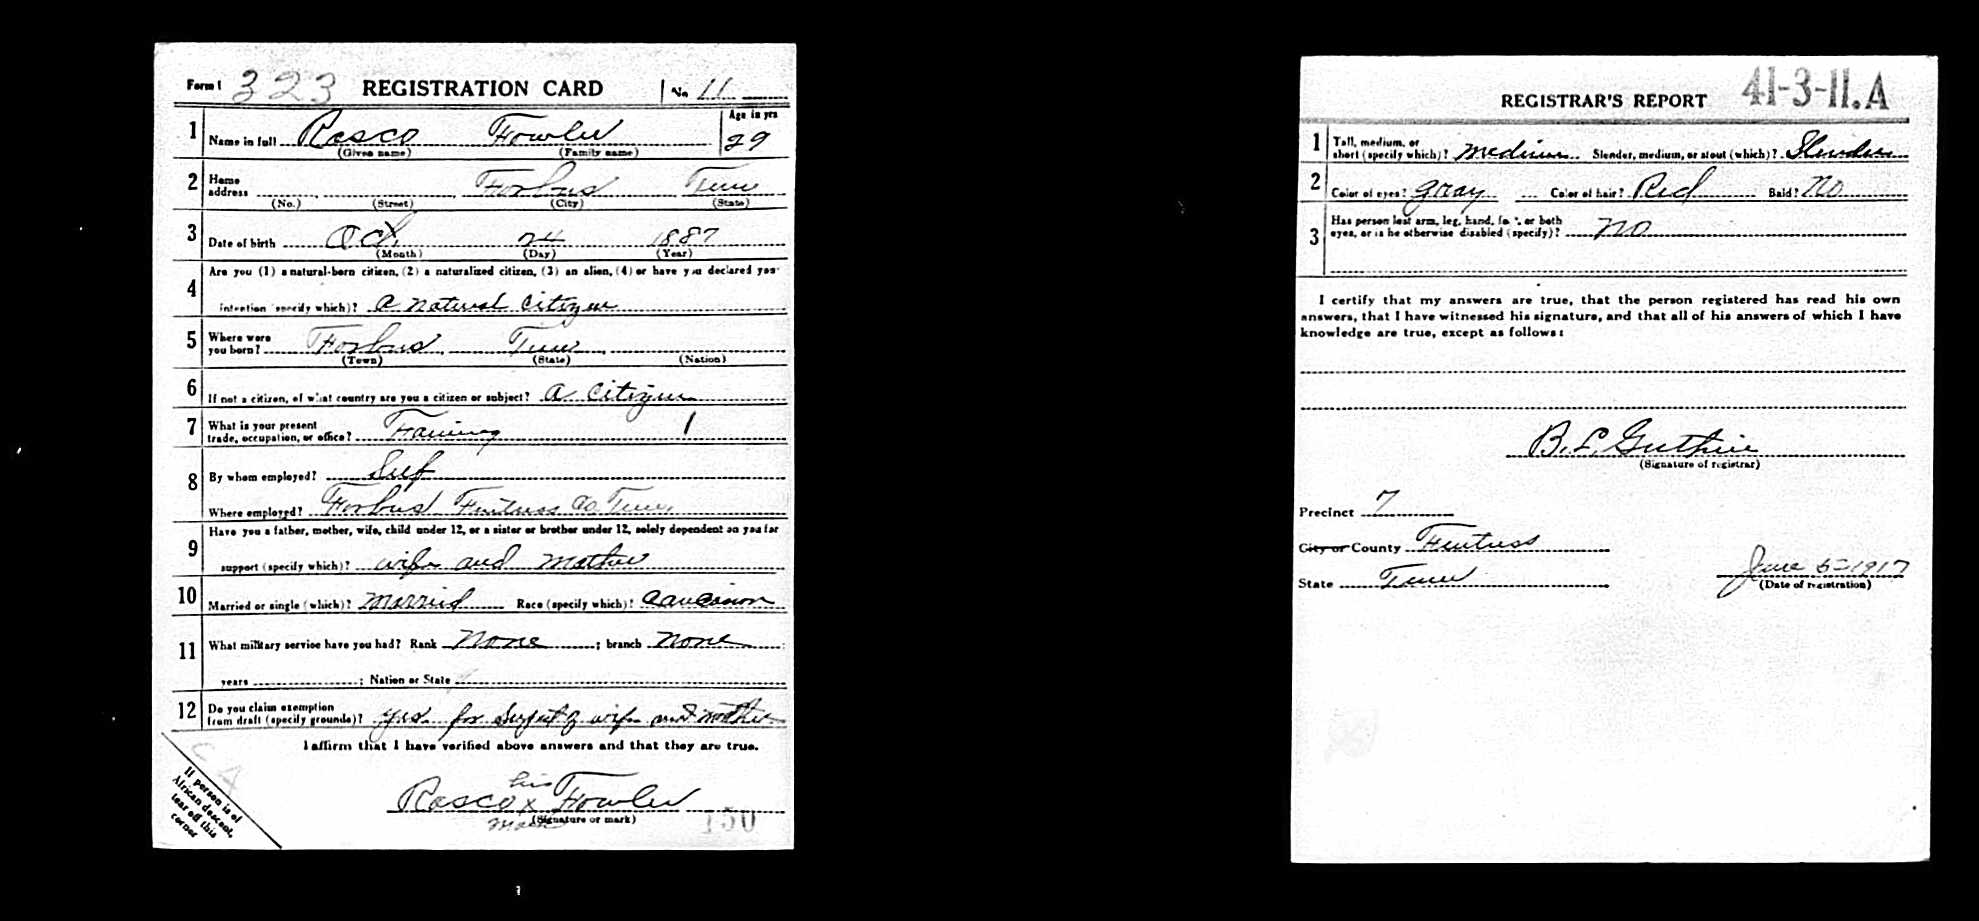 Form 1 323 REGISTRATION CARD No 11
Age in yrs
1 Name in full Rosco Fowler 29
(Given name) (Family name)
2 Home
address Forbus Tenn
(No.) (Street) (City) (State)
3 Date of birth Oct. 24 1887
(Month) (Day) (Year)
Are you (1) a natural-born citizen, (2) a naturalized citizen, (3) an alien, (4) or have you declared your
4 intention (specify which)? a natural citizen
5 Where were
you born? Forbus, Tenn,
(Town) (State) (Nation)
6 If not a citizen, of what country are you a citizen or subject? a citizen
7 What is your present
trade, occupation, or office? Farming 1
8 By whom employed? Self
Where employed? Forbus Fentress Co Tenn.
9 Have you a father, mother, wife, child under 12, or a sister or brother under 12, solely dependent on you for
support (specify which)? wife and mother
10 Married or single (which)? Married Race (specify which)? Caucasion
11 What military service have you had? Rank None ; branch None
years ; Nation or State
12 Do you claim exemption
from draft (specify grounds)? yes. for Support of wife and mother
I affirm that I have verified above answers and that they are true.
his
Rosco x Fowler
mark (Signature or mark) 150
If person is of
African descent,
tear off this
corner
REGISTRAR'S REPORT 41-3-11.A
1 Tall, medium, or
short (specify which)? medium Slender, medium, or stout (which)? Slender
2 Color of eyes? gray Color of hair? Red Bald? No
3 Has person lost arm, leg, hand, foot, or both
eyes, or is he otherwise disabled (specify)? No
I certify that my answers are true, that the person registered has read his own
answers, that I have witnessed his signature, and that all of his answers of which I have
knowledge are true, except as follows:
B. L. Guthrie
(Signature of registrar)
Precinct 7
City or County Fentress
State Tenn June 5-1917
(Date of registration)